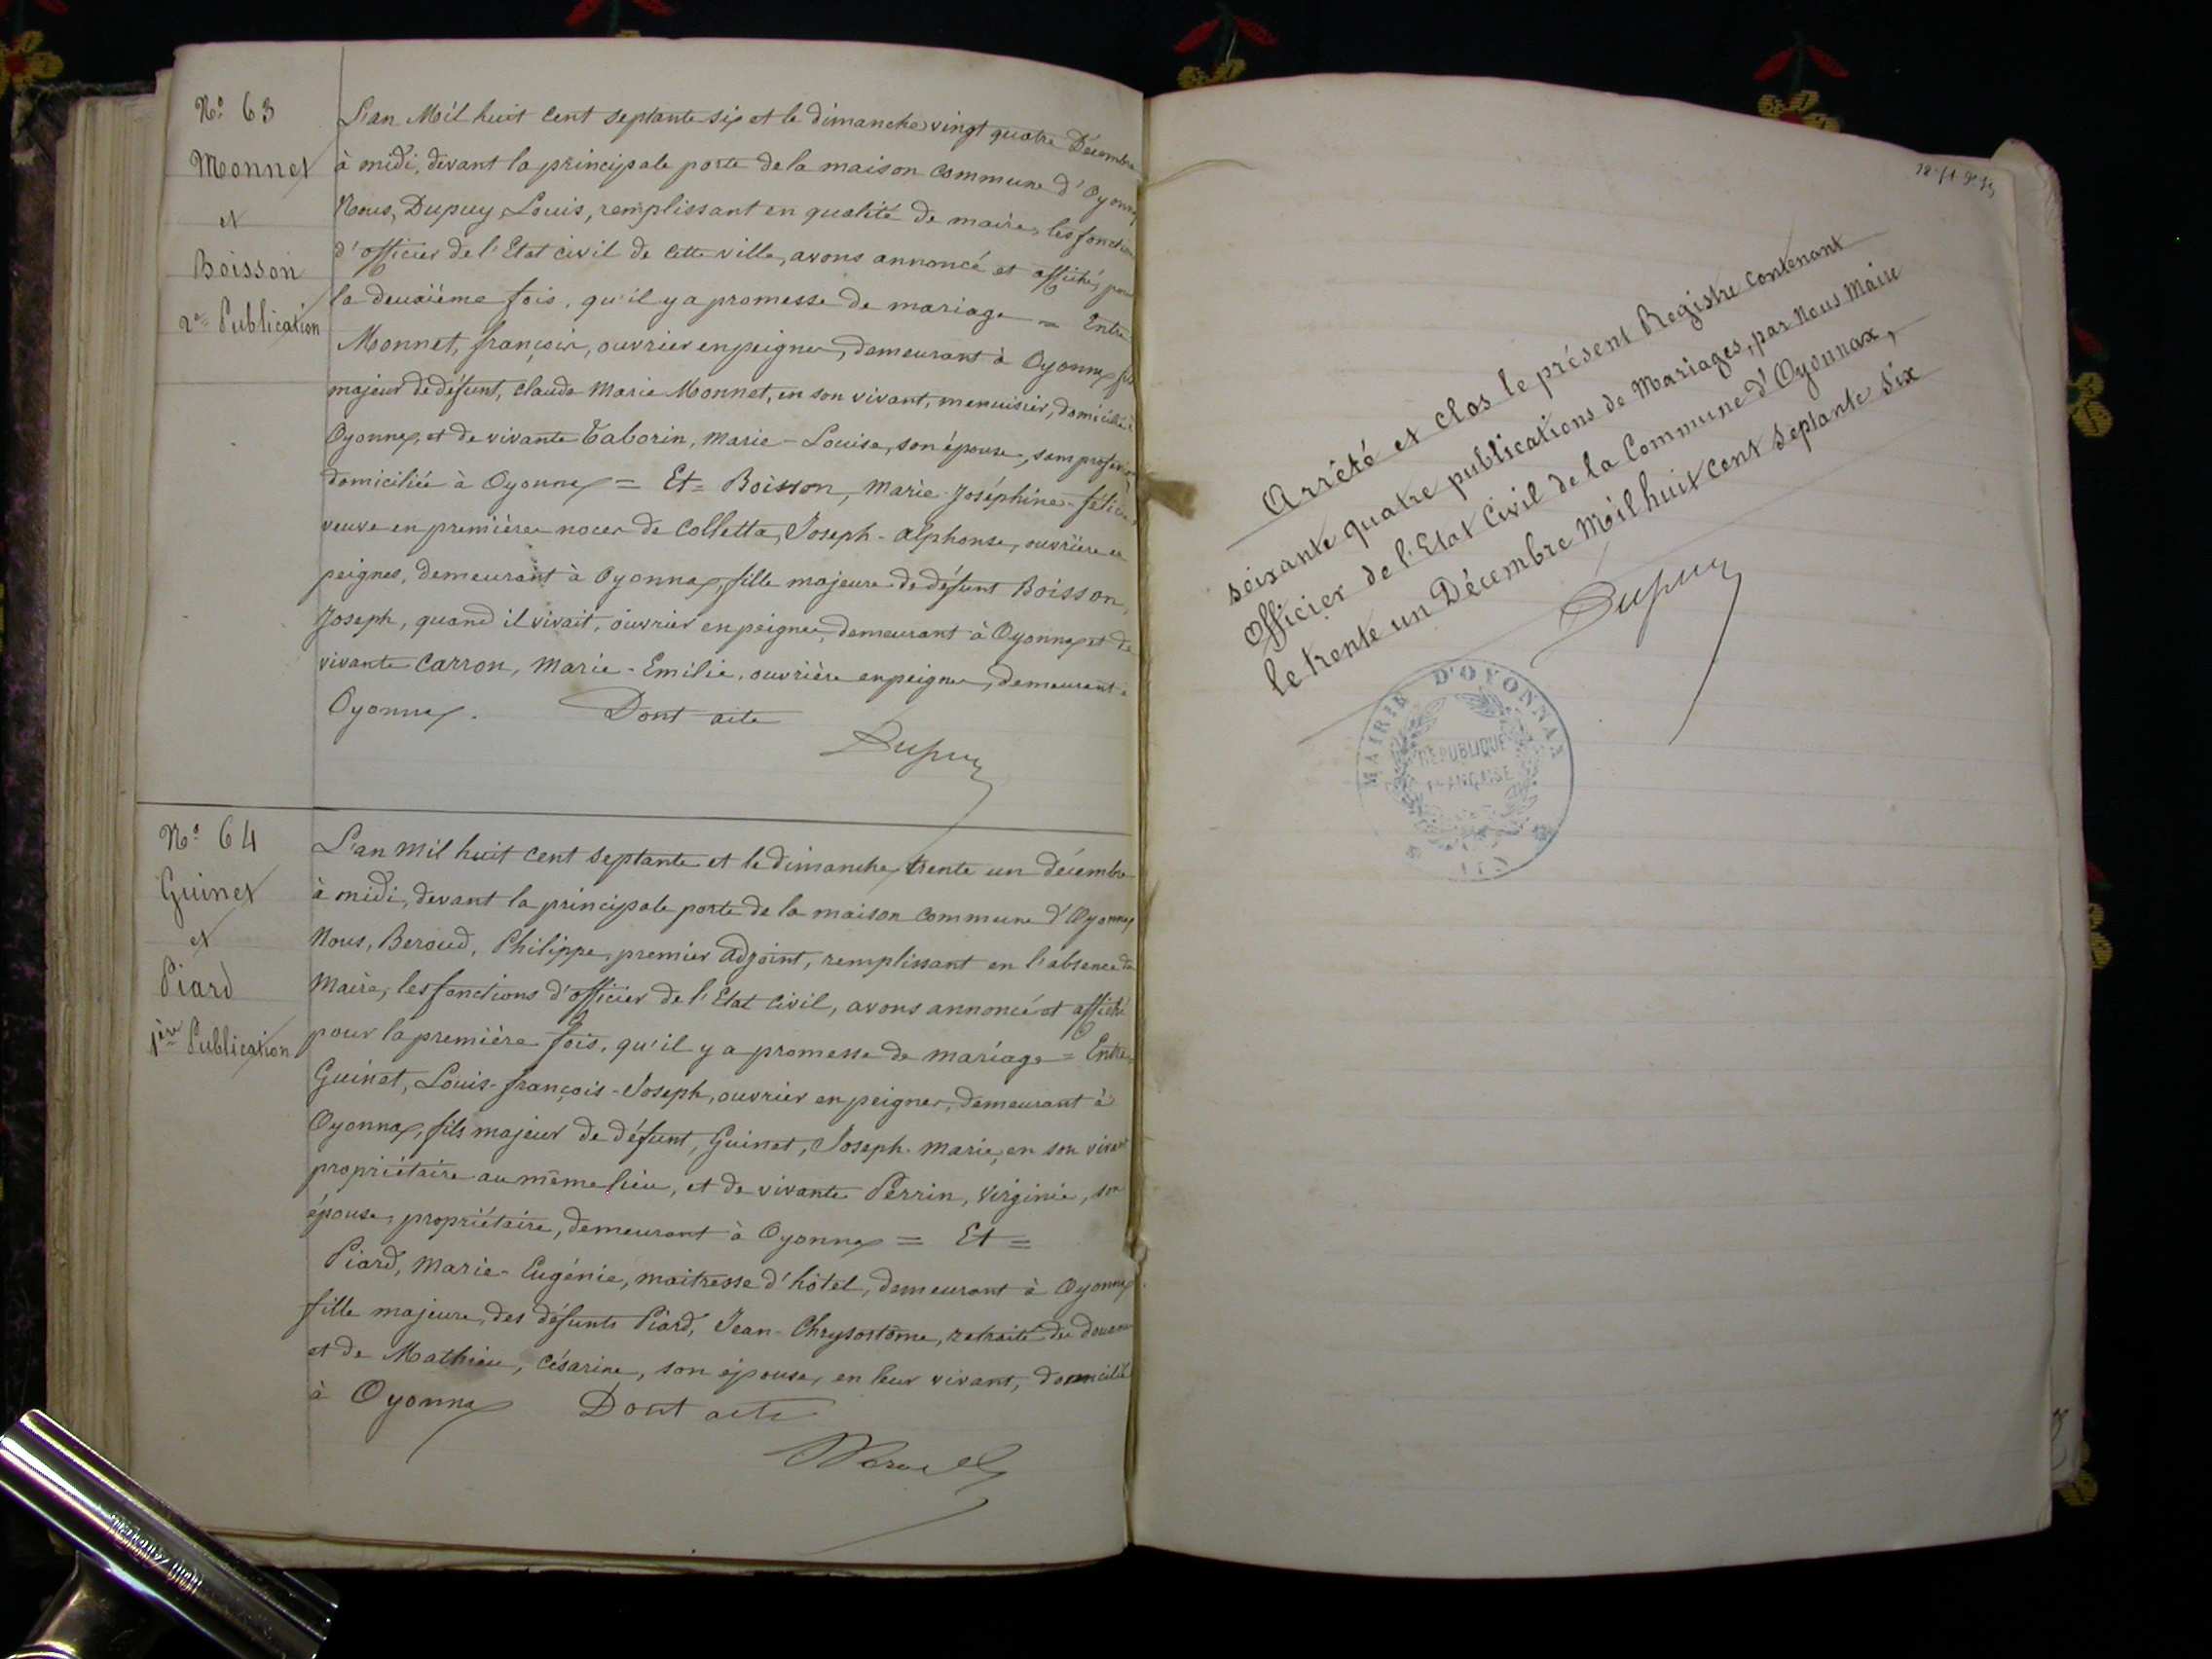 N.º 63
Monnet
et
Boisson
2e Publication
L'an Mil huit cent septante six et le dimanche vingt quatre Décembre
à midi, devant la principale porte de la maison commune d'Oyonnax
Nous, Dupuy, Louis, remplissant en qualité de maire, les fonctions
d'officier de l'Etat civil de cette ville, avons annoncé et affiché, pour
la deuxième fois, qu'il y a promesse de mariage = Entre
Monnet, françois, ouvrier en peignes, demeurant à Oyonnax, fils
majeur de défunt, claude Marie Monnet, en son vivant, menuisier, domicilié à
Oyonnax, et de vivante Taborin, Marie-Louise, son épouse, sans profession
domiciliée à Oyonnax = Et = Boisson, Marie-Joséphine-félicie,
veuve en premières noces de Colletta, Joseph-alphonse, ouvrière en
peignes, demeurant à Oyonnax, fille majeure de défunt Boisson,
Joseph, quand il vivait, ouvrier en peignes, demeurant à Oyonnax et de
vivante Carron, Marie-Emilie, ouvrière en peignes, demeurant à
Oyonnax. Dont acte
Dupuy
N.º 64
Guinet
et
Piard
1ère Publication
L'an mil huit cent septante et le dimanche trente un décembre
à midi, devant la principale porte de la maison commune d'Oyonnax
Nous, Beroud, Philippe, premier adjoint, remplissant en l'absence du
Maire, les fonctions d'officier de l'Etat civil, avons annoncé et affiché
pour la première fois, qu'il y a promesse de mariage = Entre =
Guinet, Louis-françois-Joseph, ouvrier en peignes, demeurant à
Oyonnax, fils majeur de défunt, Guinet, Joseph-Marie, en son vivant
propriétaire au même lieu, et de vivante Perrin, Virginie, son
épouse, propriétaire, demeurant à Oyonnax = Et =
Piard, Marie-Eugénie, maitresse d'hôtel, demeurant à Oyonnax
fille majeure, des défunts Piard, Jean-Chrysostôme, retraité des douanes
et de Mathieu, Césarine, son épouse, en leur vivant, domiciliés
à Oyonnax Dont acte
Arrêté et clos le présent Registre contenant
soixante quatre publications de Mariages, par Nous Maire
officier de l'Etat Civil de la Commune d'Oyonnax,
le trente un Décembre Mil huit cent septante six
Dupuy
MAIRIE D'OYONNAX
RÉPUBLIQUE
FRANÇAISE